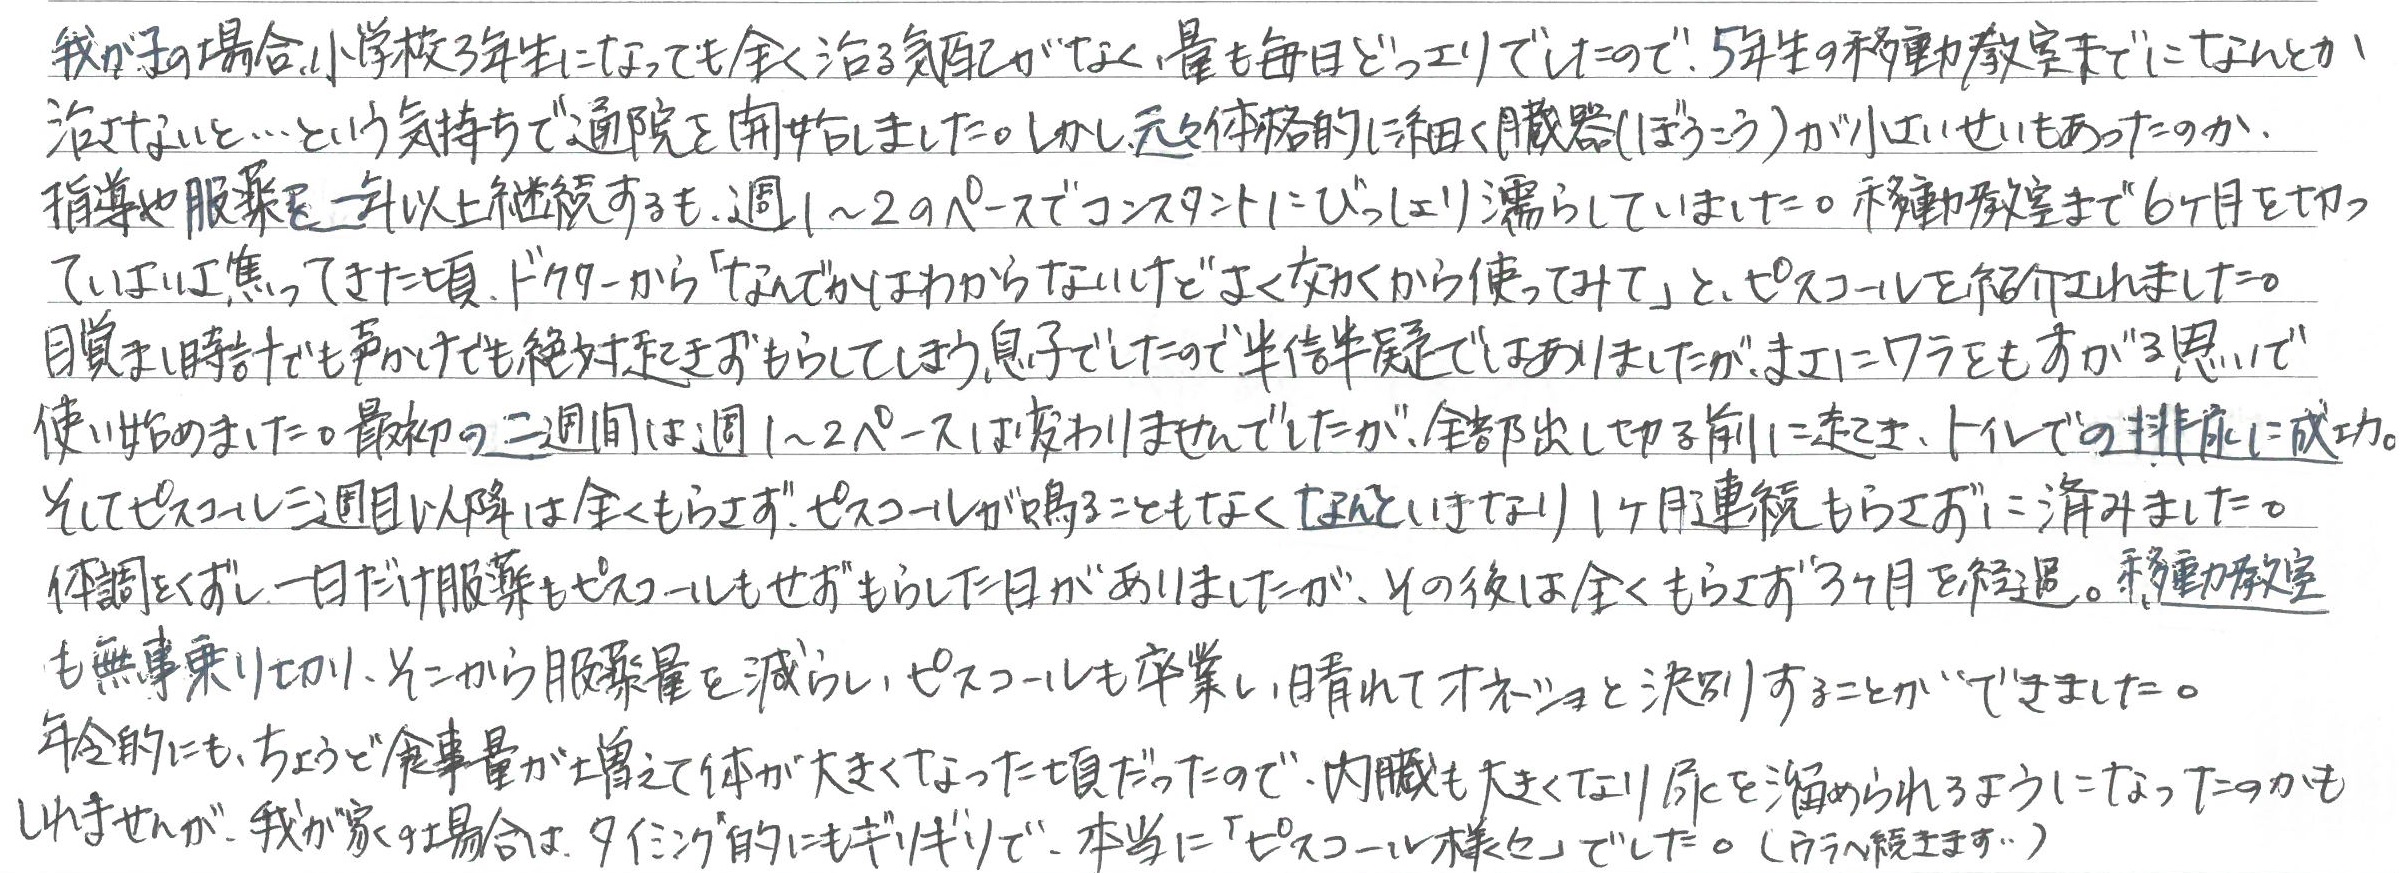 我が子の場合、小学校3年生になっても全く治る気配がなく、量も毎日どっさりでしたので、5年生の移動教室までになんとか
治さないと…という気持ちで通院を開始しました。しかし、元々体格的に細く臓器(ぼうこう)が小さいせいもあったのか、
指導や服薬を一年以上継続するも、週1～2のペースでコンスタントにびっしょり濡らしていました。移動教室まで6ケ月を切っ
ていよいよ焦ってきた頃、ドクターから「なんでかはわからないけどよく効くから使ってみて」と、ピスコールを紹介されました。
目覚まし時計でも声かけでも絶対起きずもらしてしまう息子でしたので半信半疑ではありましたが、まさにワラをもすがる思いで
使い始めました。最初の二週間は週1～2ペースは変わりませんでしたが、全部出し切る前に起き、トイレでの排尿に成功。
そしてピスコール三週目以降は全くもらさず、ピスコールが鳴ることもなくなんといきなり1ケ月連続もらさずに済みました。
体調をくずし一日だけ服薬もピスコールもせずもらした日がありましたが、その後は全くもらさず3ケ月を経過。移動教室
も無事乗り切り、そこから服薬量を減らし、ピスコールも卒業し、晴れてオネショと決別することができました。
年令的にも、ちょうど食事量が増えて体が大きくなった頃だったので、内臓も大きくなり尿を溜められるようになったのかも
しれませんが、我が家の場合は、タイミング的にもギリギリで、本当に「ピスコール様々」でした。(ウラへ続きます‥)